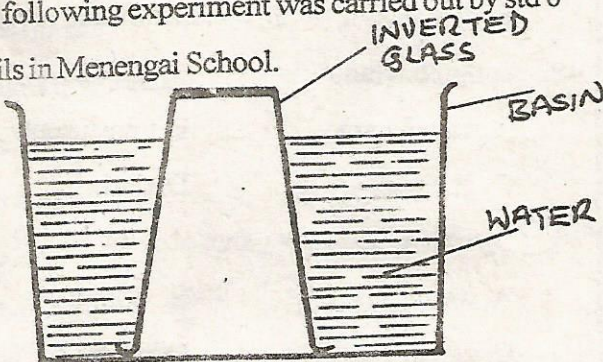 following experiment was carried out by std 6
ils in Menengai School.
INVERTED
GLASS
BASIN
WATER